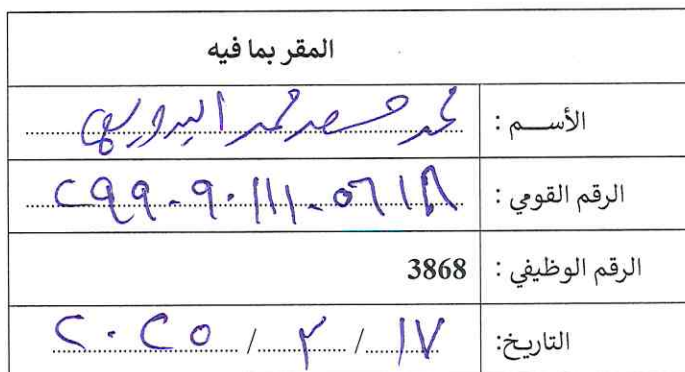 المقر بما فيه
الأســـم : محمد محمد
الرقم القومي : ٢٩٩٠٩٠١١١٠٥٦١٨
الرقم الوظيفي : 3868
التاريخ: ١٧ / ٣ / ٢٠٢٥